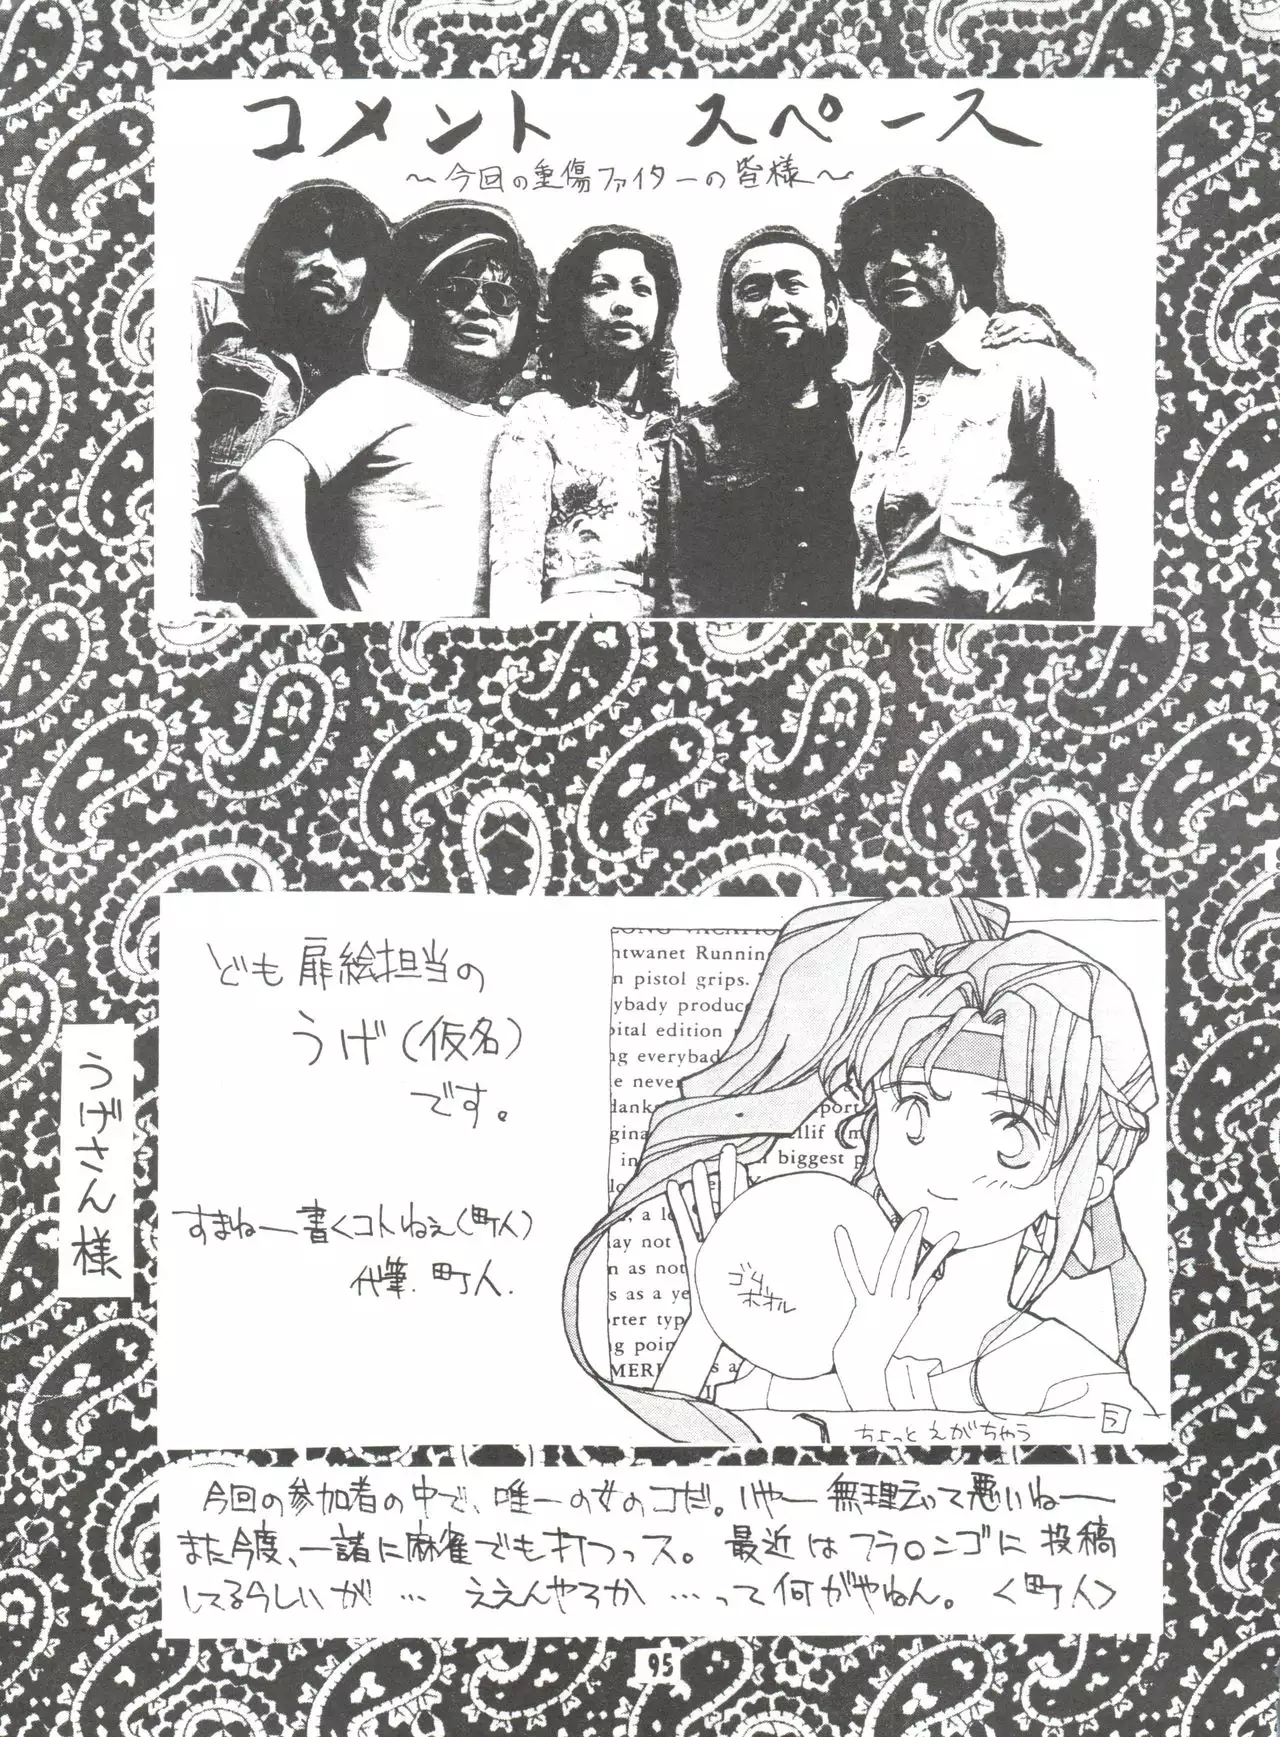 コメント スペース
〜今回の重傷ファイターの皆様〜
ども扉絵担当の
うげ(仮名)
です。
すまねー書くコトねぇ(町人)
代筆.町人.
うげさん様
LONG VACATIO
ntwanet Runnin
n pistol grips.
ybady produc
pital edition
ng everybad
e never
dank
port
gina
ellif
in
biggest p
lo
s, a lo
may not
n as not
s as a ye
orter typ
ng poin
MERI
s a
ゴム
ボオル
ちょっと えがちゃう
う
今回の参加者の中で、唯一の女のコだ。いやー無理云って悪いねー
また今度、一諸に麻雀でも打つっス。最近はフラ○ンゴに投稿
してるらしいが… ええんやろか …って何がやねん。〈町人〉
95